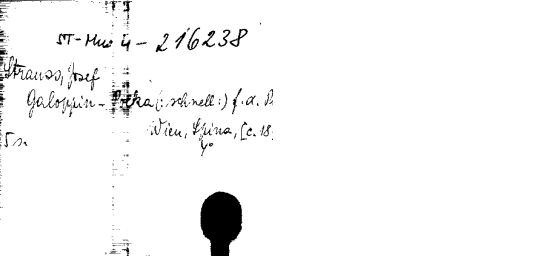 ST-Mus 4 - 216238
Strauss, Josef
Galoppin - Polka (: schnell :) f. d. P
Wien, Spina, [c. 18
4°
5 s.